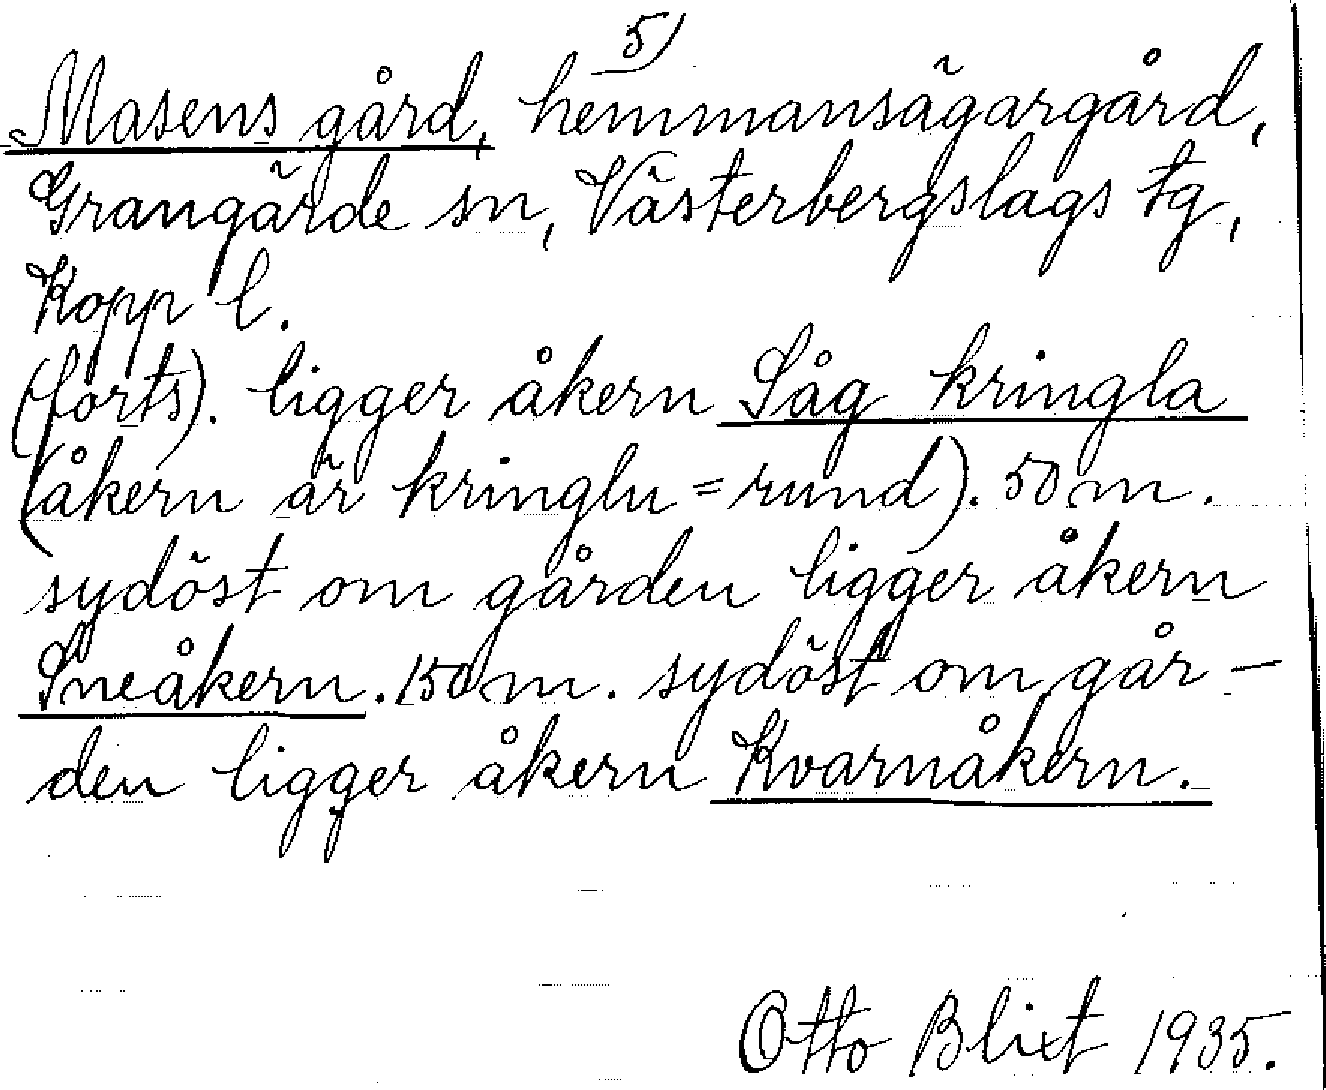 5)
Masens gård, hemmansägargård,
Grangärde sn, Västerbergslags tg,
Kopp l.
(forts). ligger åkern Såg kringla
(åkern är kringlu = rund). 50 m.
sydöst om gården ligger åkern
Sneåkern. 150 m. sydöst om går-
den ligger åkern Kvarnåkern.
Otto Blixt 1935.